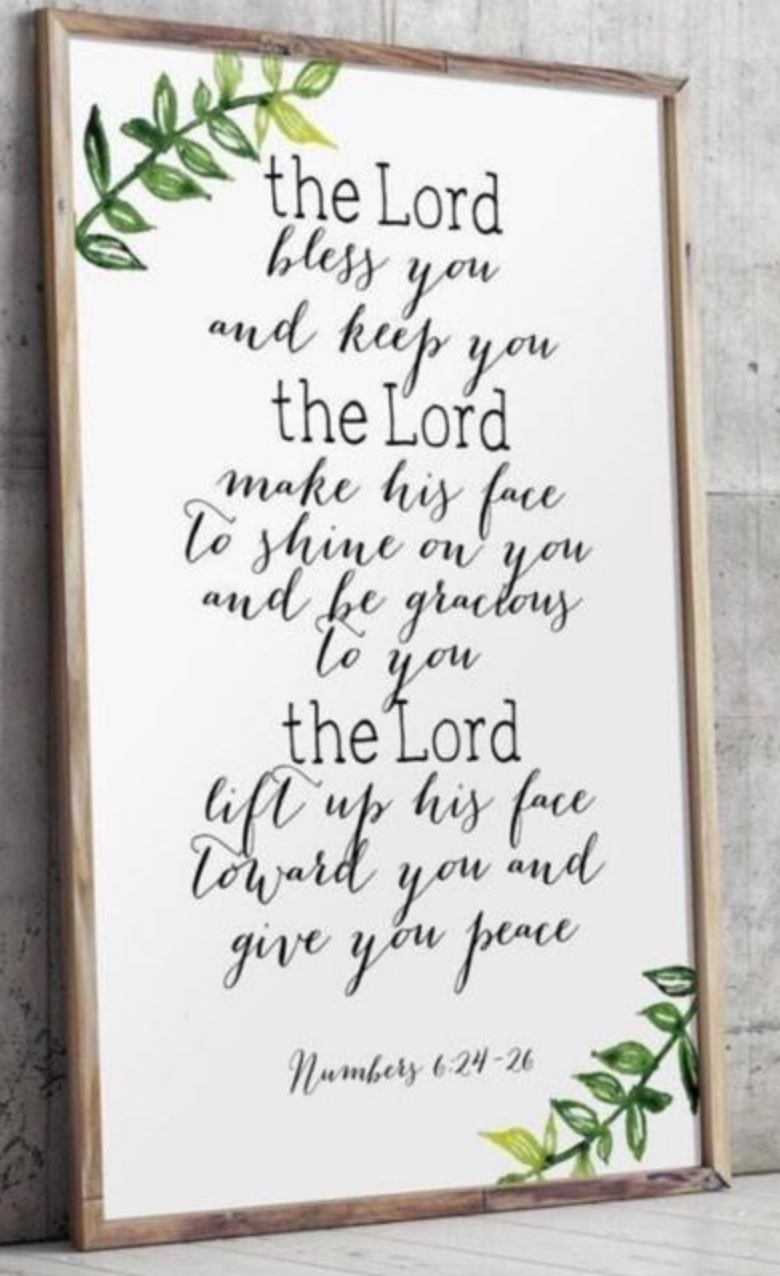 the Lord
bless you
and keep you
the Lord
make his face
to shine on you
and be gracious
to you
the Lord
lift up his face
toward you and
give you peace
Numbers 6:24-26